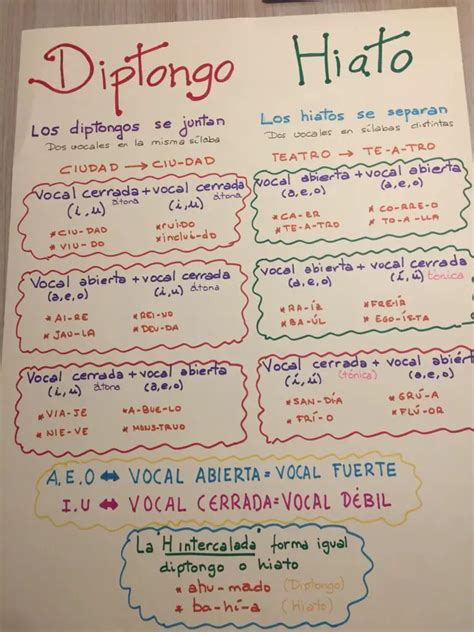 Diptongo
Los diptongos se juntan
Dos vocales en la misma sílaba
CIUDAD → CIU-DAD
Vocal cerrada + vocal cerrada
(i, u) átona (i, u) átona
* CIU-DAD
* VIU-DO
* rui-DO
* inclui-do
Vocal abierta + vocal cerrada
(a, e, o) (i, u) átona
* AI-RE
* JAU-LA
* REI-NO
* DEU-DA
Vocal cerrada + vocal abierta
(i, u) átona (a, e, o)
* VIA-JE
* NIE-VE
* A-BUE-LO
* MONS-TRUO
Hiato
Los hiatos se separan
Dos vocales en sílabas distintas
TEATRO → TE-A-TRO
Vocal abierta + vocal abierta
(a, e, o) (a, e, o)
* CA-ER
* TE-A-TRO
* CO-RRE-O
* TO-A-LLA
Vocal abierta + vocal cerrada
(a, e, o) (í, ú) tónica
* RA-ÍZ
* BA-ÚL
* FRE-ÍR
* EGO-ÍSTA
Vocal cerrada + vocal abierta
(í, ú) (tónica) (a, e, o)
* SAN-DÍA
* FRÍ-O
* GRÚ-A
* FLÚ-OR
A.E.O ↔ VOCAL ABIERTA = VOCAL FUERTE
I.U ↔ VOCAL CERRADA = VOCAL DÉBIL
La "H intercalada" forma igual
diptongo o hiato
* ahu-mado (Diptongo)
* ba-hí-a (Hiato)